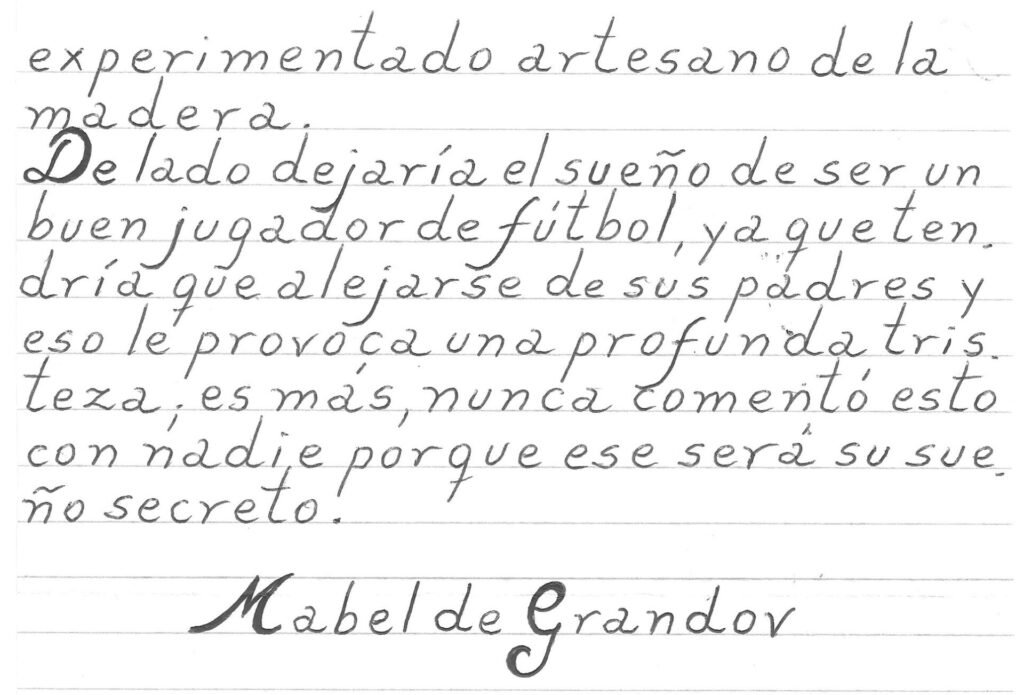 experimentado artesano de la
madera.
De lado dejaría el sueño de ser un
buen jugador de fútbol, ya que ten-
dría que alejarse de sus padres y
eso le provoca una profunda tris-
teza; es más, nunca comentó esto
con nadie porque ese será su sue-
ño secreto.
Mabel de Grandov